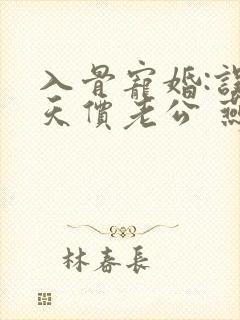 入骨寵婚:誤
天價老公 燕
林春長